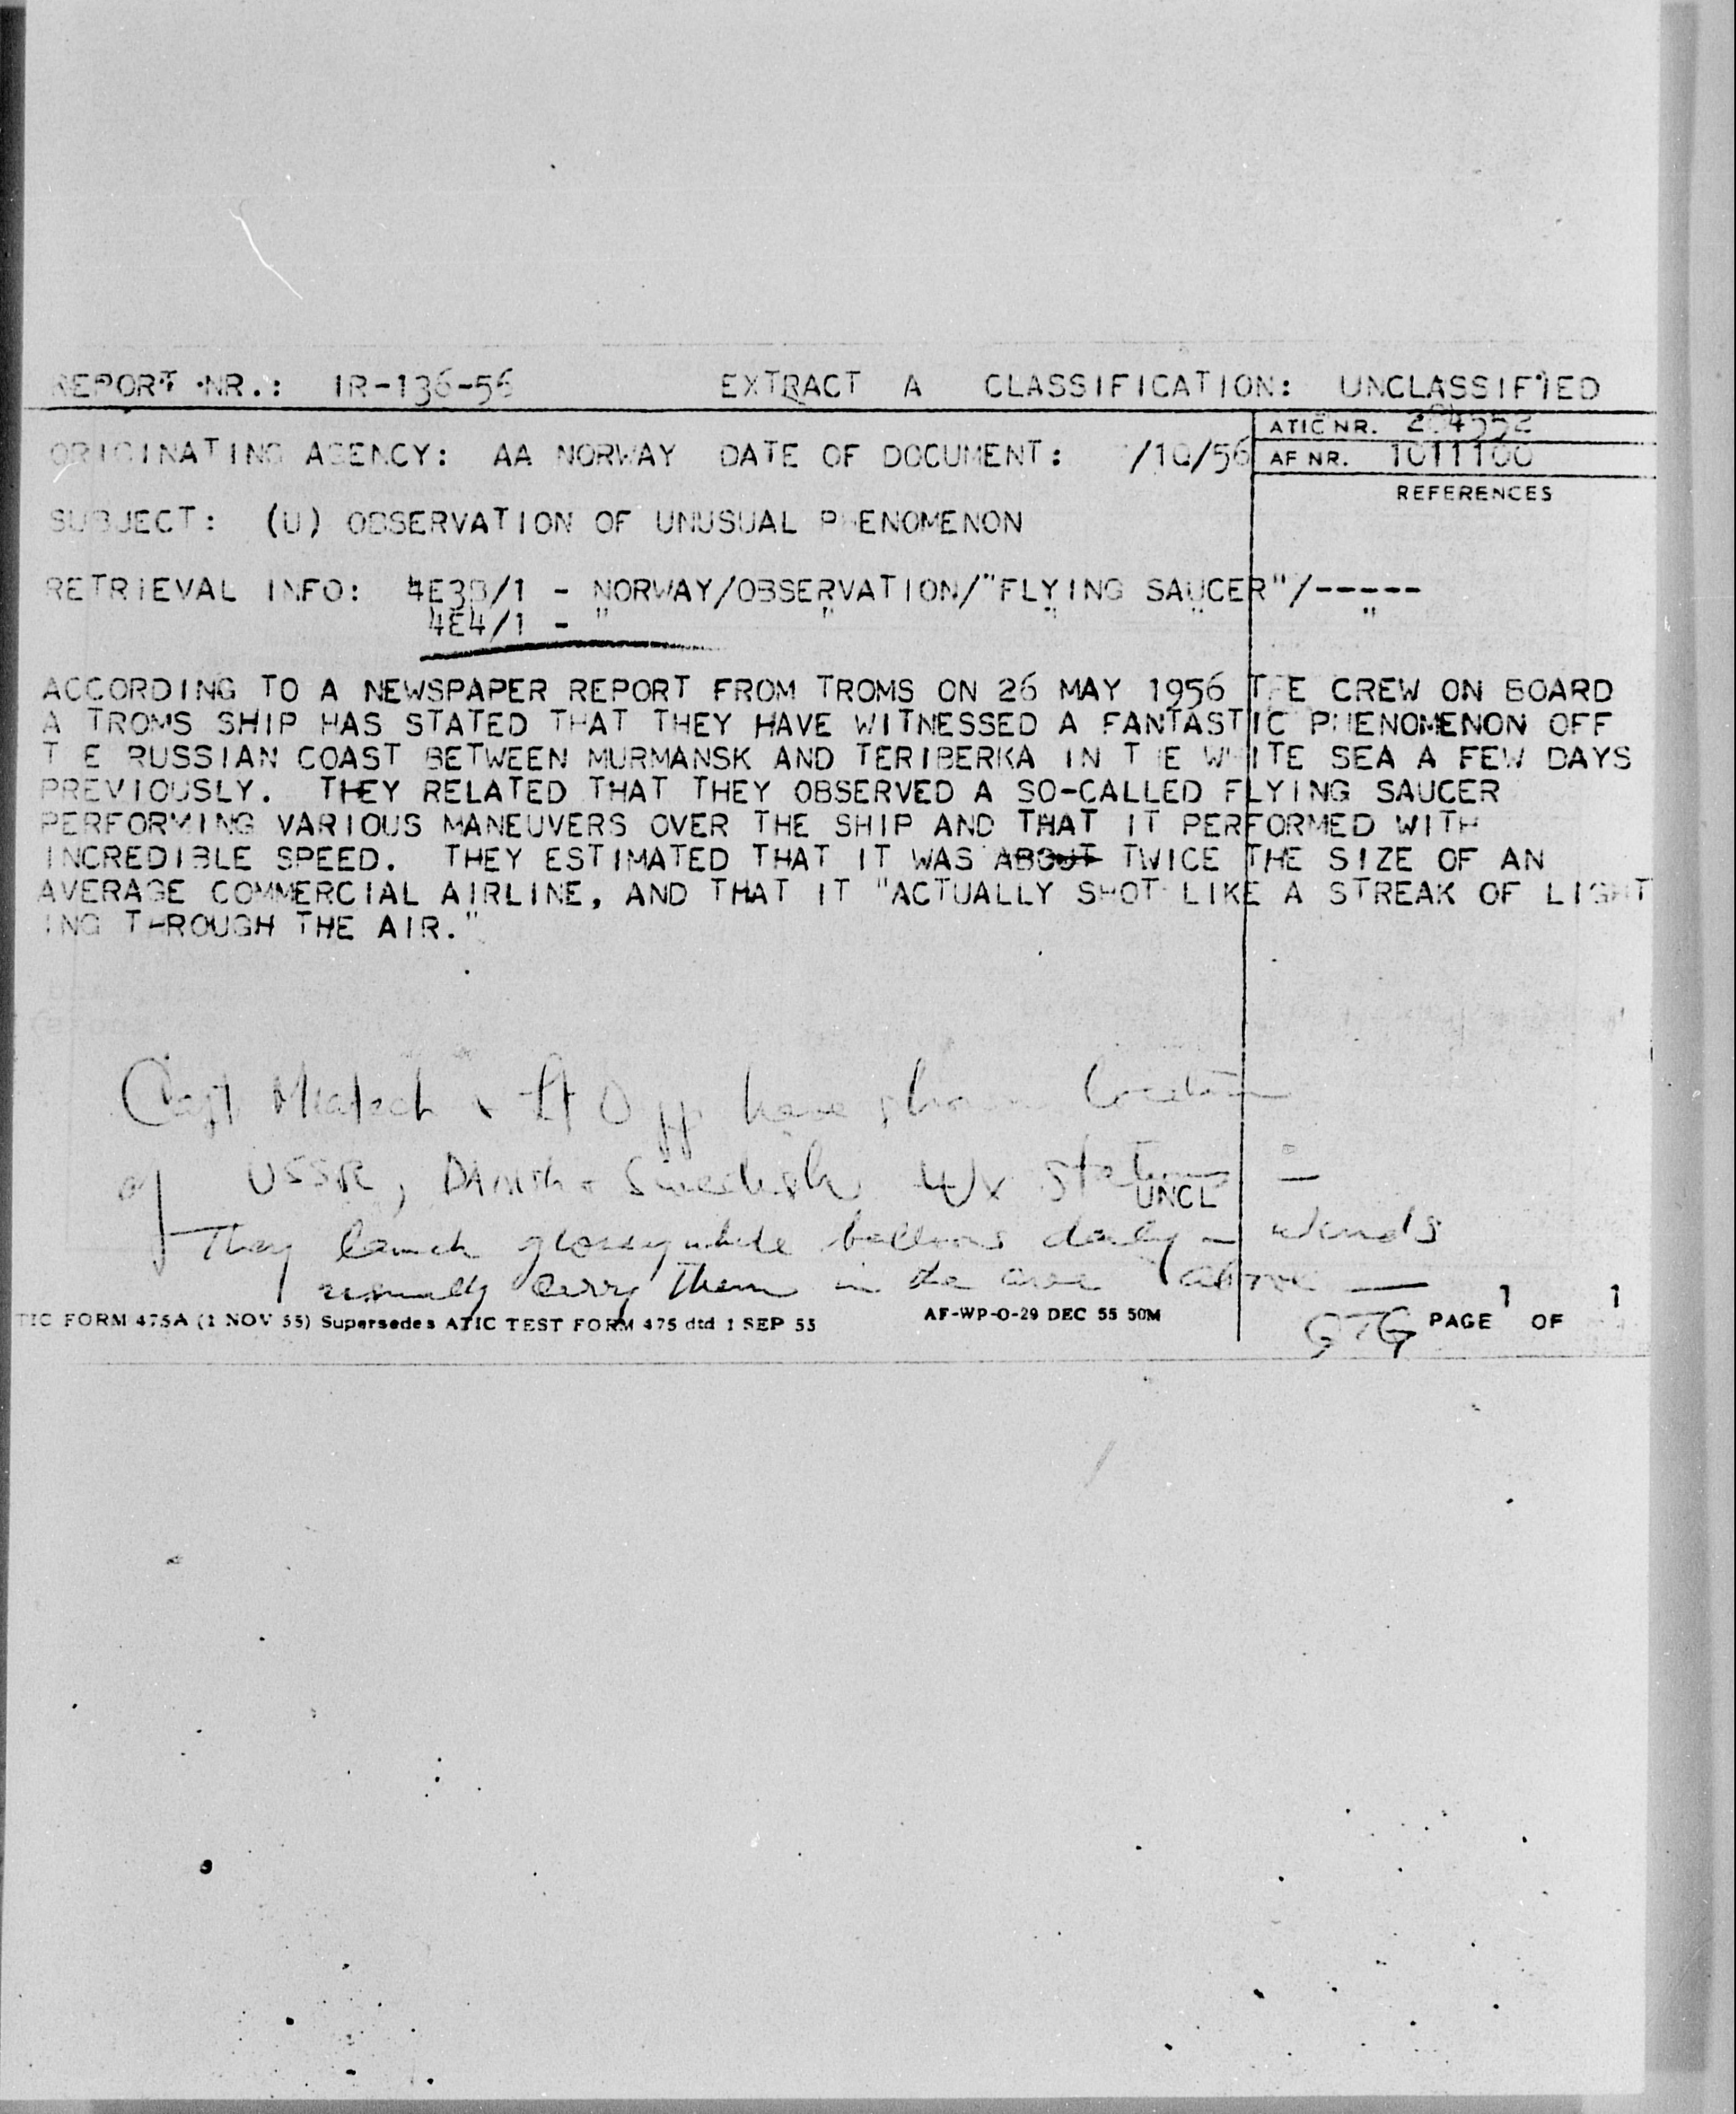 REPORT NR.: IR-136-56 EXTRACT A CLASSIFICATION: UNCLASSIFIED
ATIC NR.
ORIGINATING AGENCY: AA NORWAY DATE OF DOCUMENT: /10/56
AF NR. 1011100
REFERENCES
SUBJECT: (U) OBSERVATION OF UNUSUAL PHENOMENON
RETRIEVAL INFO: 4E3B/1 - NORWAY/OBSERVATION/"FLYING SAUCER"/-----
4E4/1 - " " " " "
ACCORDING TO A NEWSPAPER REPORT FROM TROMS ON 26 MAY 1956 THE CREW ON BOARD
A TROMS SHIP HAS STATED THAT THEY HAVE WITNESSED A FANTASTIC PHENOMENON OFF
THE RUSSIAN COAST BETWEEN MURMANSK AND TERIBERKA IN THE WHITE SEA A FEW DAYS
PREVIOUSLY. THEY RELATED THAT THEY OBSERVED A SO-CALLED FLYING SAUCER
PERFORMING VARIOUS MANEUVERS OVER THE SHIP AND THAT IT PERFORMED WITH
INCREDIBLE SPEED. THEY ESTIMATED THAT IT WAS ABOUT TWICE THE SIZE OF AN
AVERAGE COMMERCIAL AIRLINE, AND THAT IT "ACTUALLY SHOT LIKE A STREAK OF LIGHT
ING THROUGH THE AIR."
Capt & Lt have shown location
of USSR, Danish & Swedish Wx stations —
UNCL
They launch glossy white balloons daily – winds
normally carry them in the area above —
TIC FORM 475A (1 NOV 55) Supersedes ATIC TEST FORM 475 dtd 1 SEP 55 AF-WP-O-29 DEC 55 50M GTG PAGE 1 OF 1